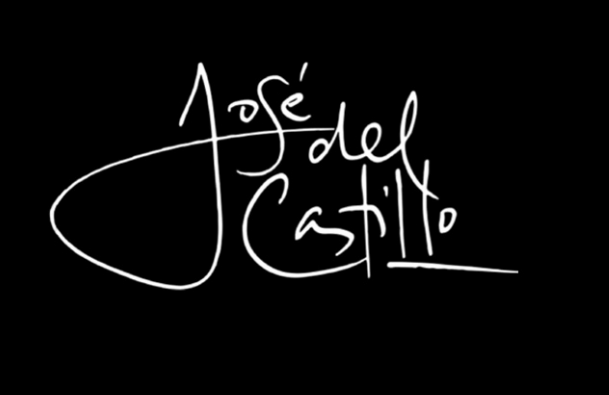 José
del
Castillo